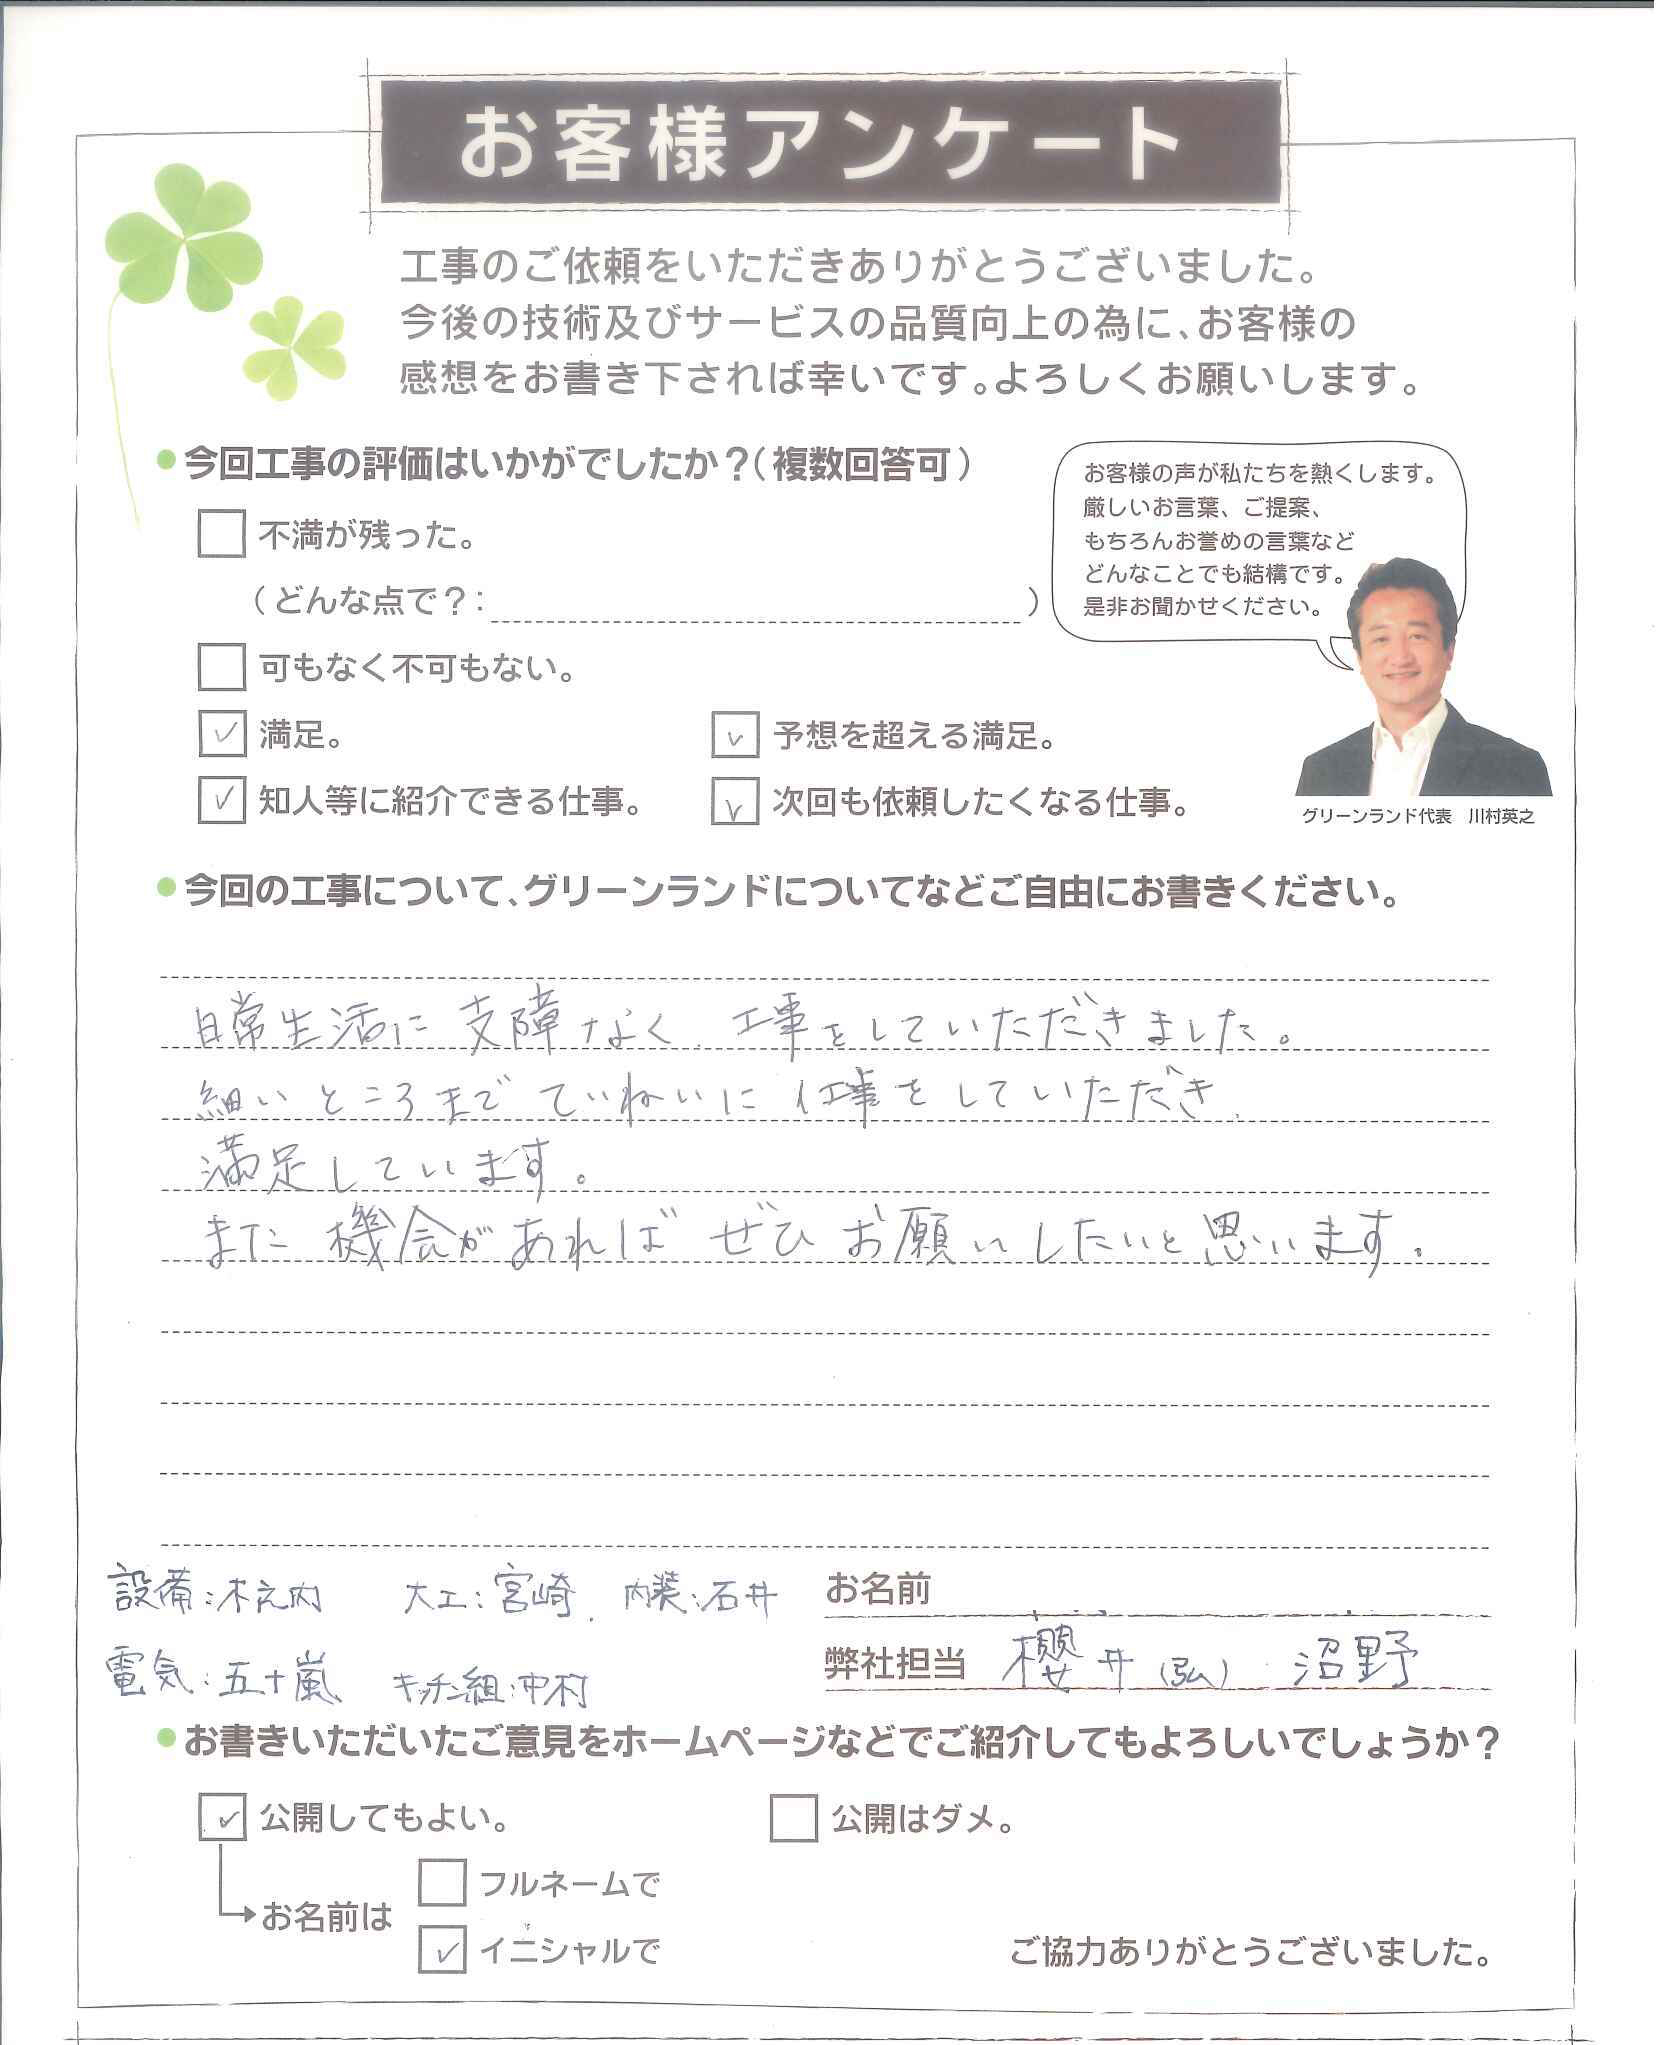 お客様アンケート
工事のご依頼をいただきありがとうございました。
今後の技術及びサービスの品質向上の為に、お客様の
感想をお書き下されば幸いです。よろしくお願いします。
今回工事の評価はいかがでしたか？（複数回答可）
不満が残った。
（どんな点で？：　）
可もなく不可もない。
✓ 満足。
✓ 予想を超える満足。
✓ 知人等に紹介できる仕事。
✓ 次回も依頼したくなる仕事。
お客様の声が私たちを熱くします。
厳しいお言葉、ご提案、
もちろんお誉めの言葉など
どんなことでも結構です。
是非お聞かせください。
グリーンランド代表　川村英之
今回の工事について、グリーンランドについてなどご自由にお書きください。
日常生活に支障なく、工事をしていただきました。
細いところまでていねいに仕事をしていただき、
満足しています。
また機会があればぜひお願いしたいと思います。
設備：木之内　大工：宮崎、内装：石井
電気：五十嵐　キッチン組：中村
お名前
弊社担当　櫻井（弘）　沼野
お書きいただいたご意見をホームページなどでご紹介してもよろしいでしょうか？
✓ 公開してもよい。
公開はダメ。
お名前は
フルネームで
✓ イニシャルで
ご協力ありがとうございました。